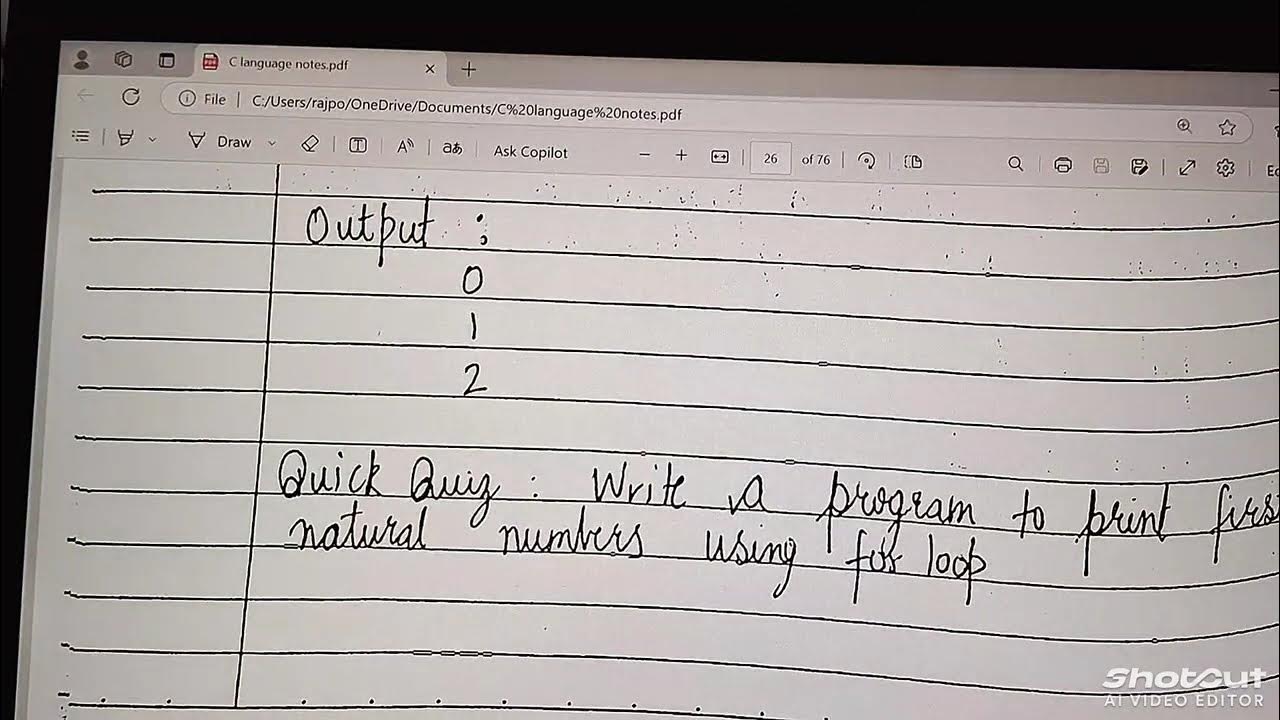 C language notes.pdf
File | C:/Users/rajpo/OneDrive/Documents/C%20language%20notes.pdf
Draw Ask Copilot 26 of 76
Output :
0
1
2
Quick Quiz : Write a program to print
natural numbers using for loop
Shotcut
AI VIDEO EDITOR